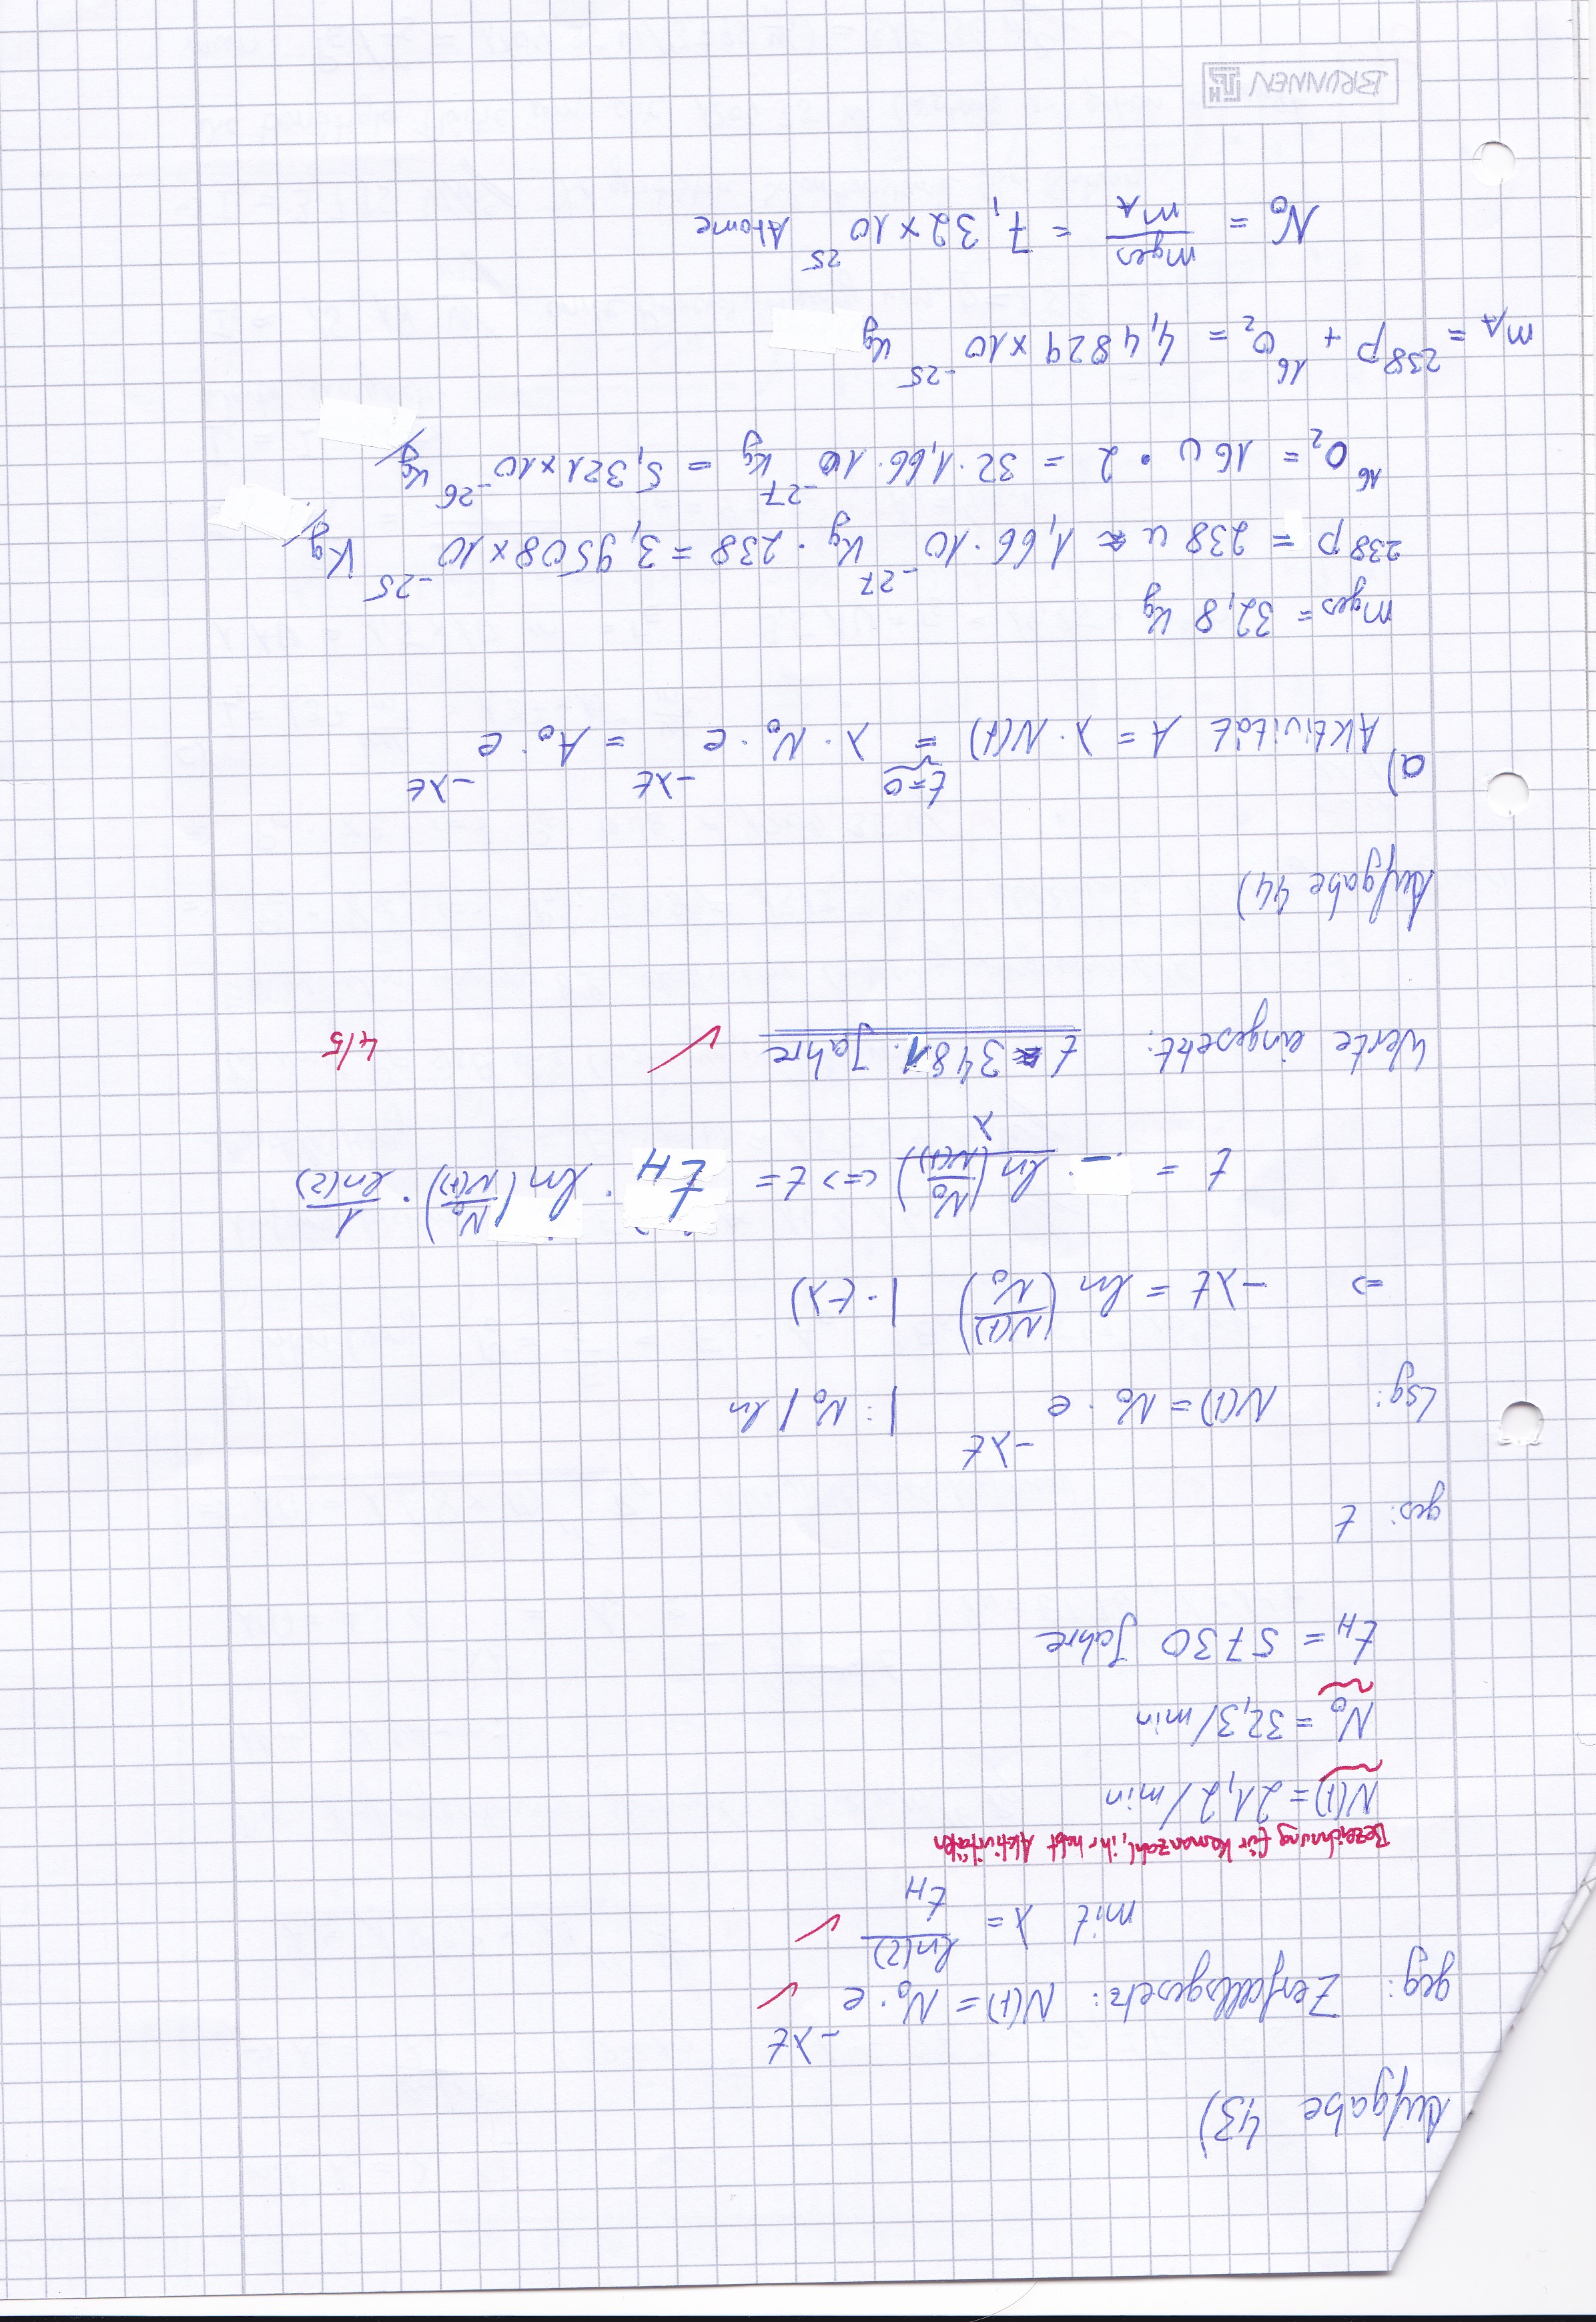 Aufgabe 43)
geg: Zerfallsgesetz: N(t) = N₀ · e^(-λt) ✓
mit λ = ln(2)/t_H ✓
Bezeichnung für Kernanzahl, ihr habt Aktivitäten
N(t) = 21,2/min
N₀ = 32,3/min
t_H = 5730 Jahre
ges: t
Lsg: N(t) = N₀ · e^(-λt) | : N₀ / ln
=> -λt = ln(N(t)/N₀) | · (-λ)
t = - ln(N₀/N(t))/λ <=> t = t_H · ln(N₀/N(t)) · 1/ln(2)
Werte eingesetzt: t ≈ 3481. Jahre ✓ 4/5
Aufgabe 44)
a)
t=0
Aktivität A = λ · N(t) = λ · N₀ · e^(-λt) = A₀ · e^(-λt)
mges = 32,8 Kg
²³⁸P = 238 u ≈ 1,66 · 10⁻²⁷ Kg · 238 = 3,9508 × 10⁻²⁵ Kg
¹⁶O₂ = 16 u · 2 = 32 · 1,66 · 10⁻²⁷ Kg = 5,321 × 10⁻²⁶ Kg
m_A = ²³⁸P + ¹⁶O₂ = 4,4829 × 10⁻²⁵ Kg
N₀ = mges/m_A = 7,32 × 10²⁵ Atome
BRUNNEN